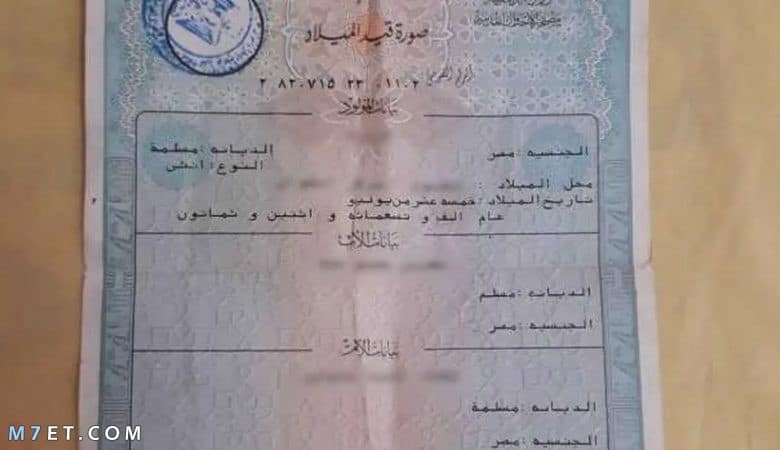 مصلحة الأحوال المدنية
صورة قيد الميلاد
الرقم القومى ٢ ٨٢٠٧١٥ ٢٣ ٠١١٠٢
بيانات المولود
الجنسيه : مصر الديانه : مسلمة
النوع : انثى
محل الميلاد :
تاريخ الميلاد : خمسه عشر من يوليو
عام الف و تسعمائه و اثنين و ثمانون
بيانات الأب
الديانه : مسلم
الجنسيه : مصر
بيانات الأم
الديانه : مسلمة
الجنسيه : مصر
M7ET.COM